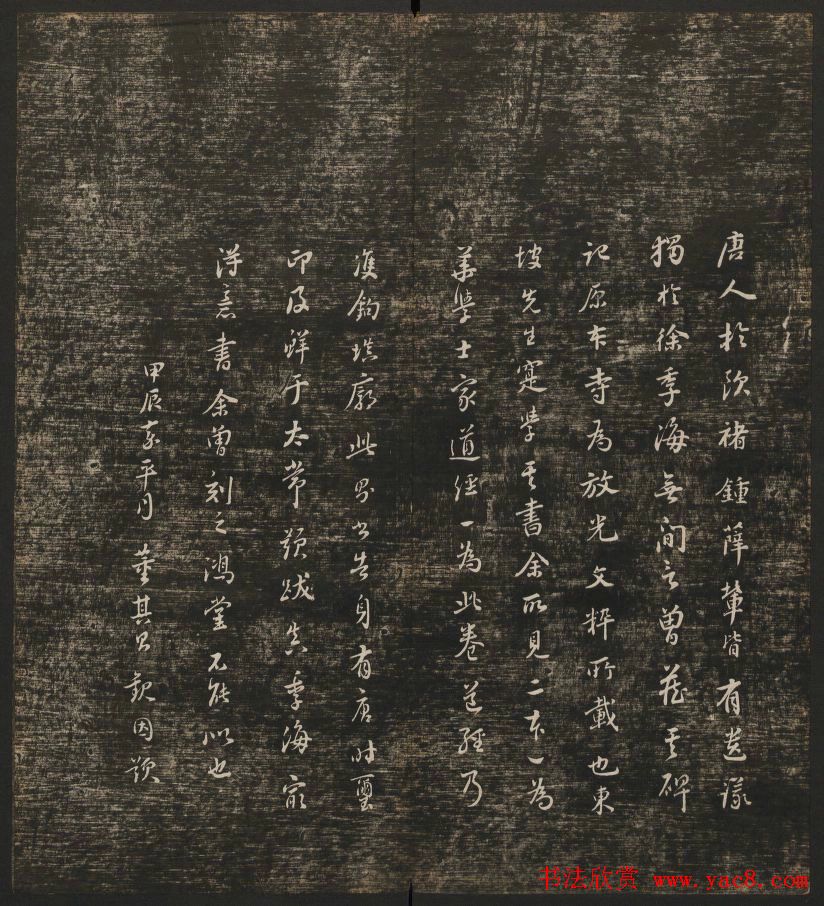 唐人於欧褚鍾薛輩皆有遺議
獨於徐季海無間言曾花其碑
記原本寺為放光文粹所載也東
坡先生寔學其書余所見二本一為
華學士家道經一為此卷道經乃
雙鉤填廓此则告身有唐时璽
印及鲜于太常题跋真季海最
得意書余曾刻之鴻堂不能似也
甲辰嘉平月 董其昌觀因题
书法欣赏 www.yac8.com